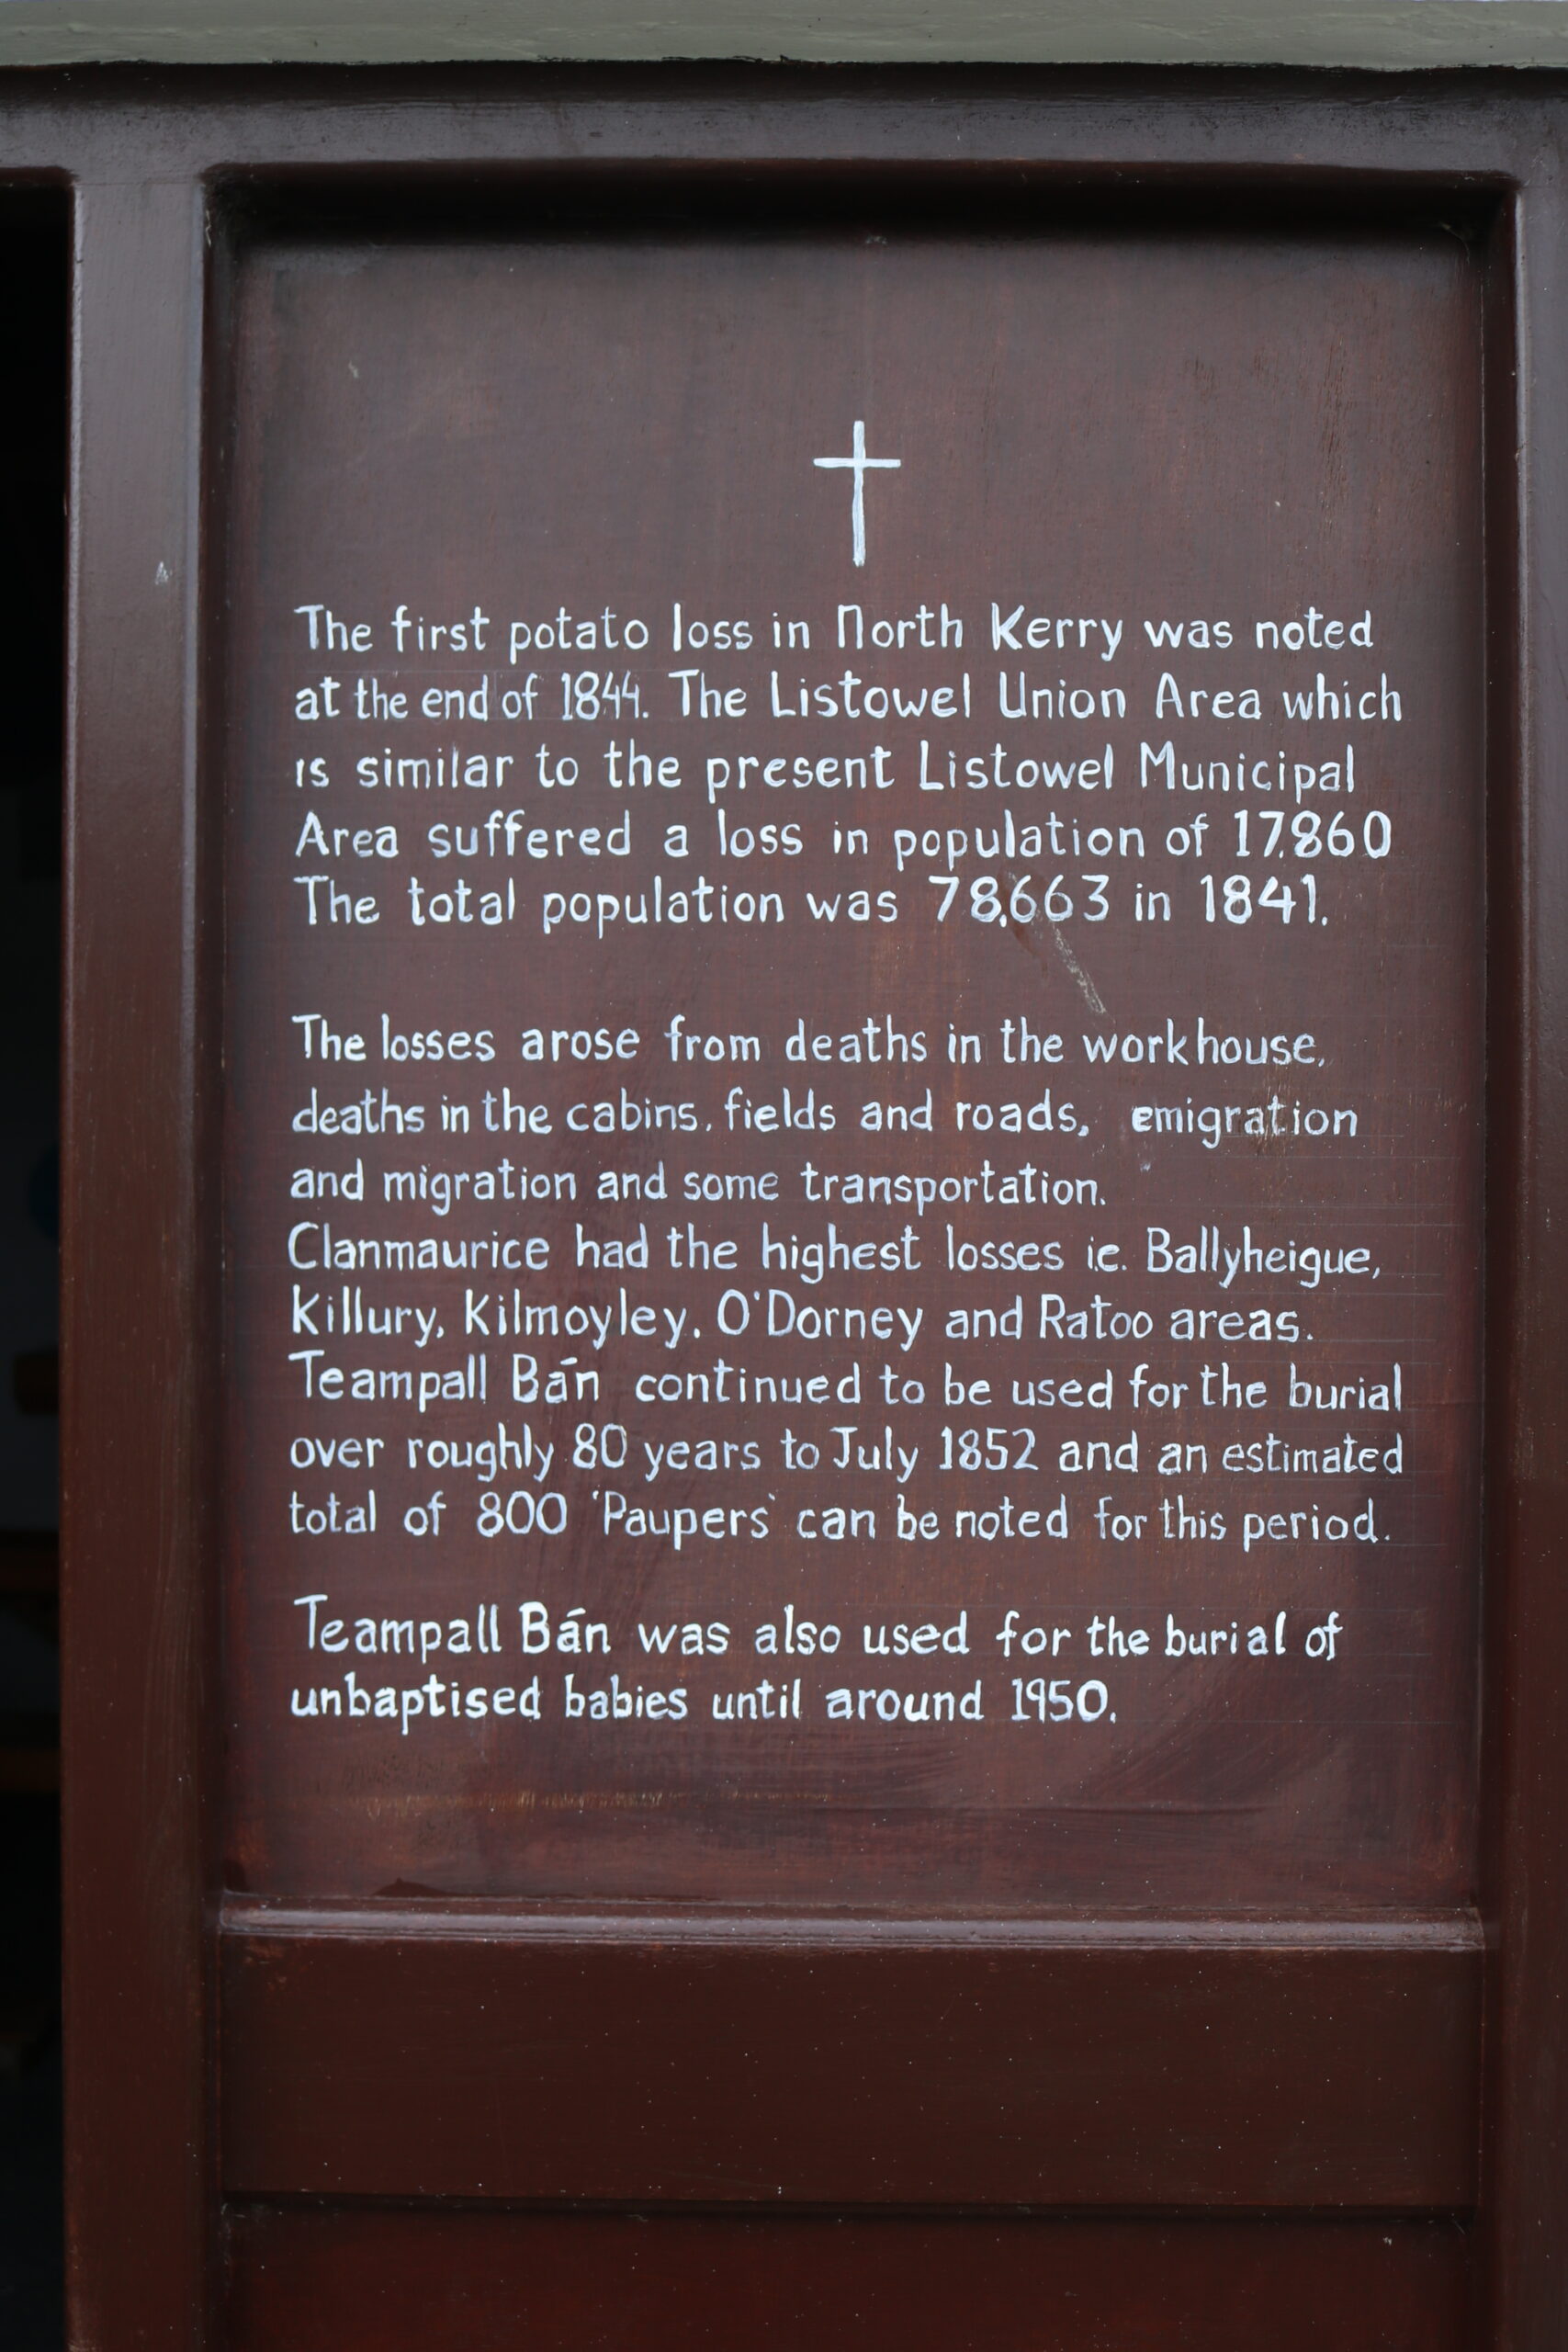 The first potato loss in North Kerry was noted
at the end of 1844. The Listowel Union Area which
is similar to the present Listowel Municipal
Area suffered a loss in population of 17,860
The total population was 78,663 in 1841.
The losses arose from deaths in the workhouse,
deaths in the cabins, fields and roads, emigration
and migration and some transportation.
Clanmaurice had the highest losses i.e. Ballyheigue,
Killury, Kilmoyley, O'Dorney and Ratoo areas.
Teampall Bán continued to be used for the burial
over roughly 80 years to July 1852 and an estimated
total of 800 'Paupers' can be noted for this period.
Teampall Bán was also used for the burial of
unbaptised babies until around 1950.